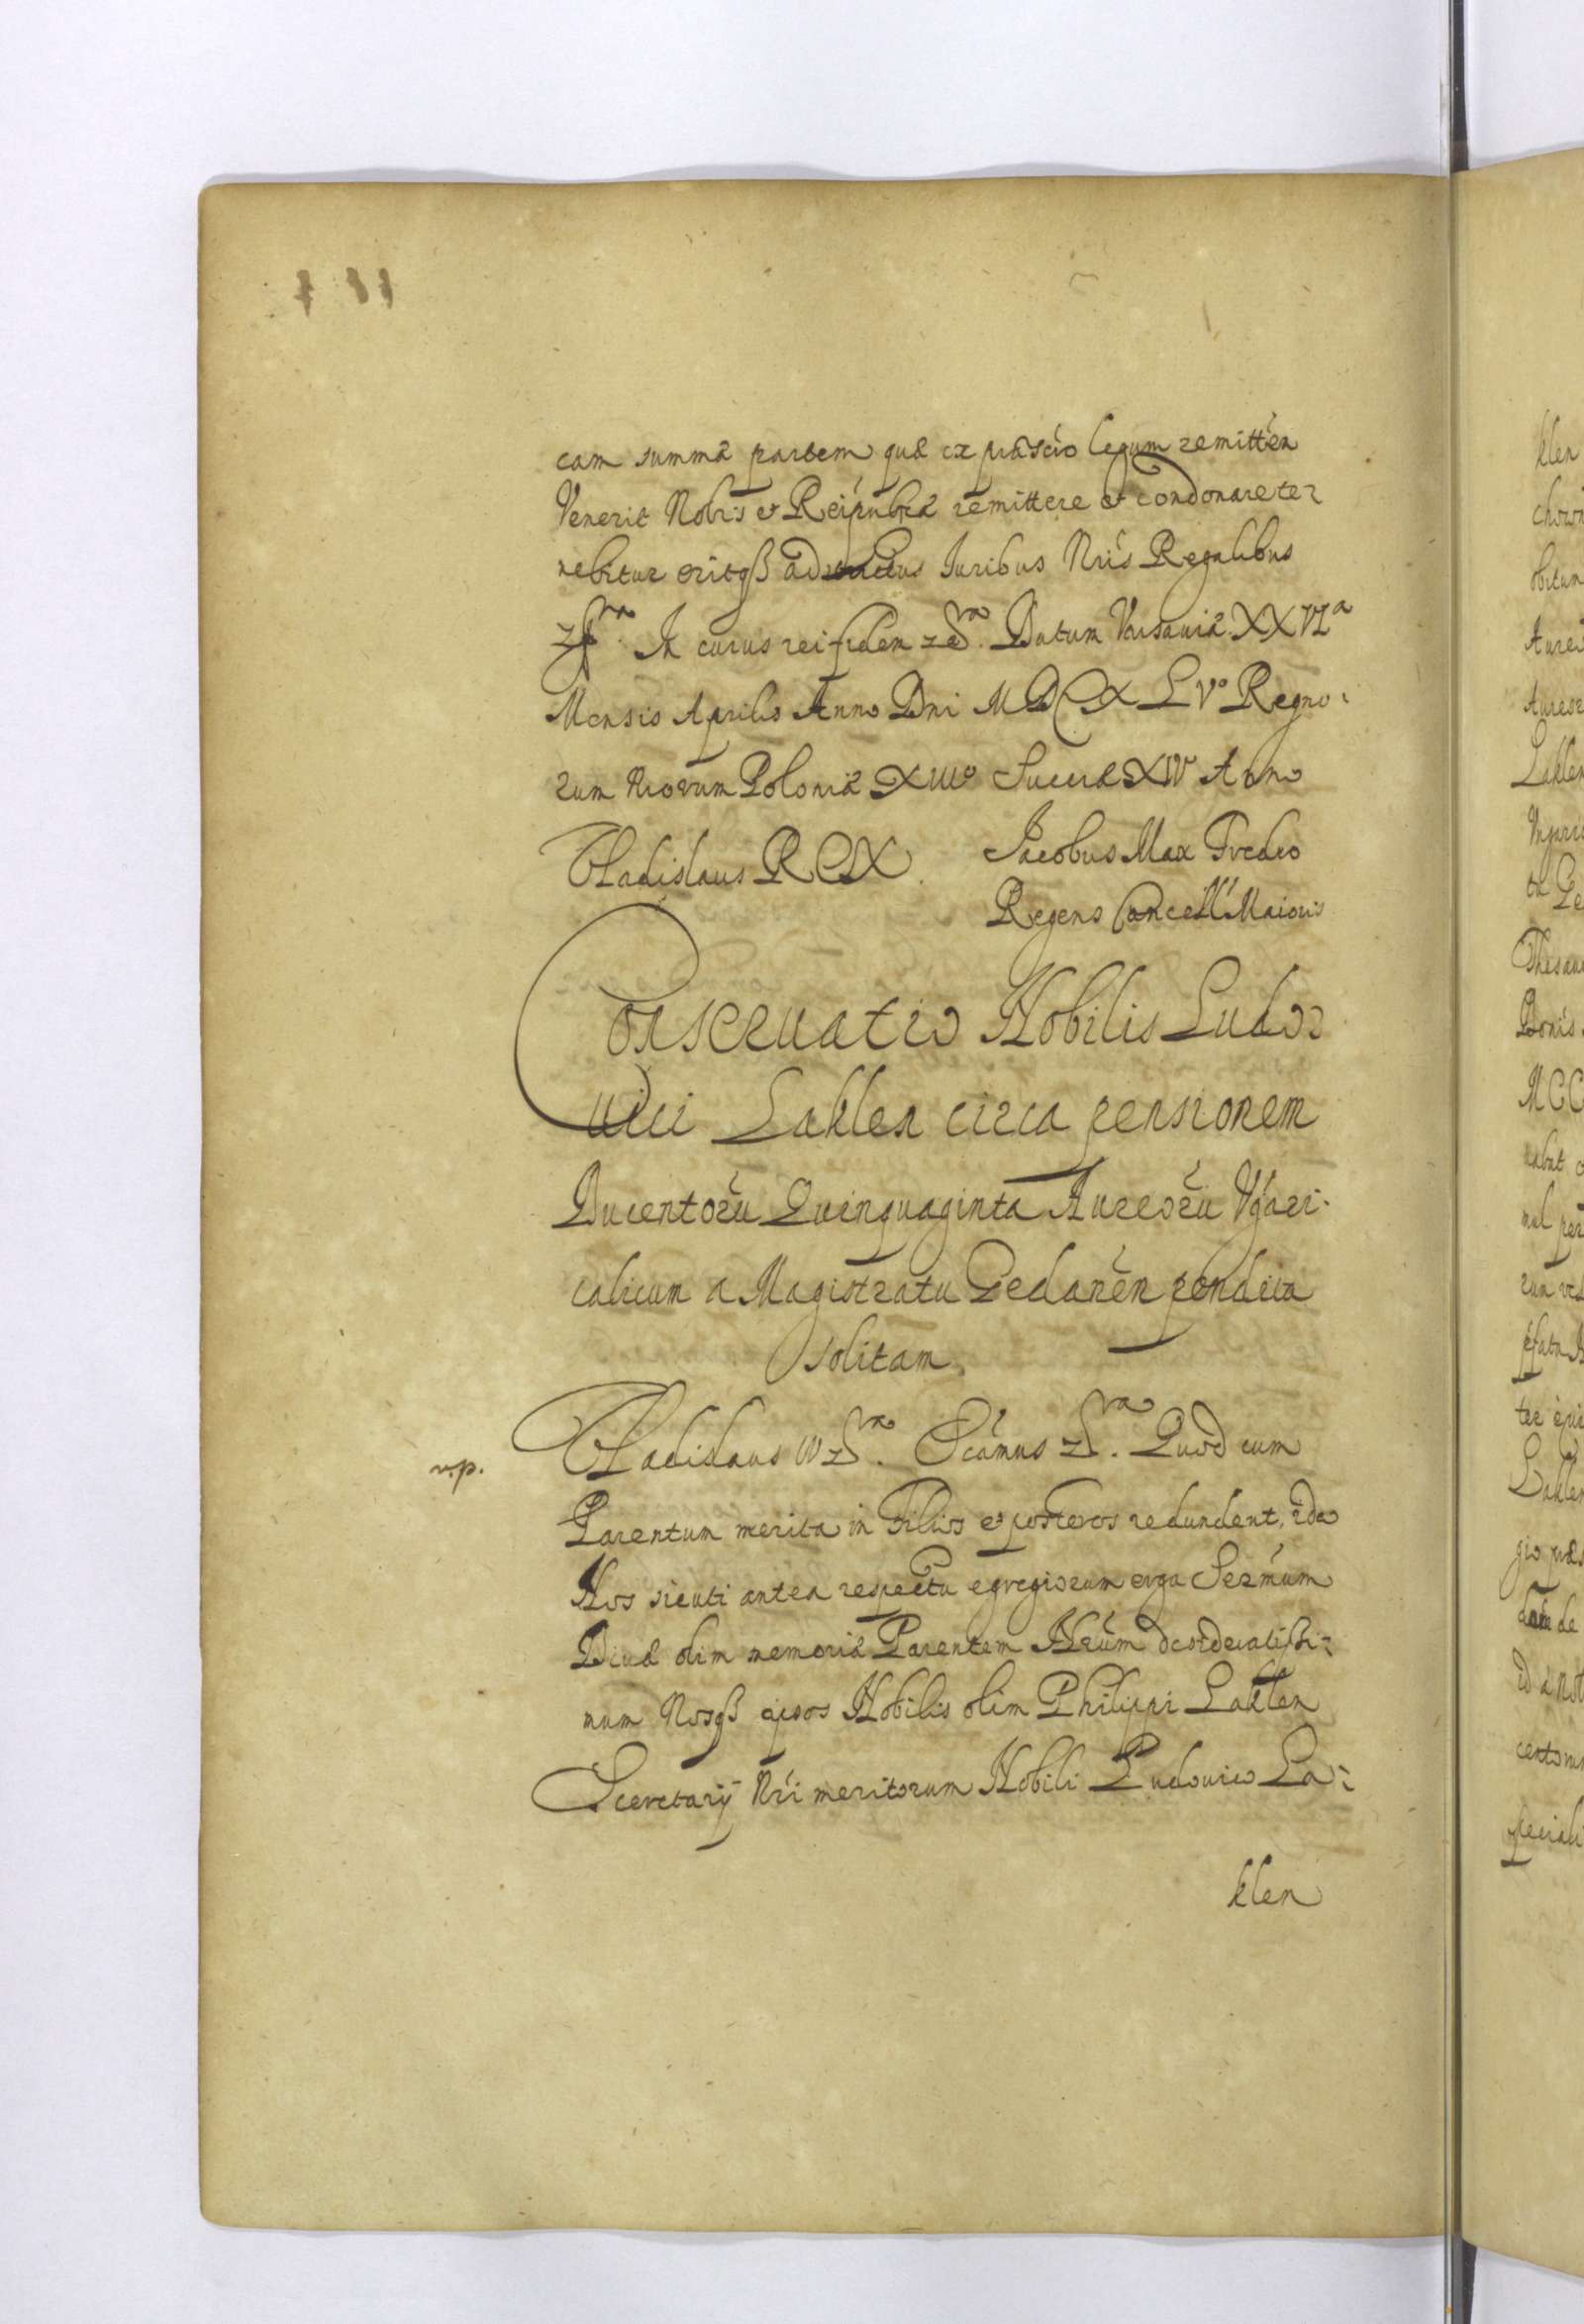 cam summæ partem quæ ex præscrō legum remittēn
Venerit Nobis et Reipublcæ remittere et condonare te⁊
nebitur eritqß ad Iuribus Nris Regalibus
In cuius rei fidem Datum Varsaviæ XXVI.a
Mensis Aprilis Anno Dni MDCXLVo Regno⹀
rum nrorum Poloniæ XIIIo Sueciæ XIV Anno
Vladislaus REX. Jacobus Max Fredro
Regens Cancell' Maioris
Conseruatio Nobilis Ludo⹀
uici Laklen circa pensionem
Ducentorū Quinquaginta Aureorū Vgāri⹀
calicum a Magistratu Gedanēn pendita
solitam.
v.p.
Vladislaus IV Quod cum
Parentum merita in Filios et posteros redundent, ida
Nos sicuti antea respectu egregiorum erga Sermum
Diuæ olim memoriæ Parentem Nrūm desideratißi⹀
mum Nosqß ipsos Nobilis olim Philippi Laklen
Secretarij Nri meritorum Nobili Ludouico La⹀
klen